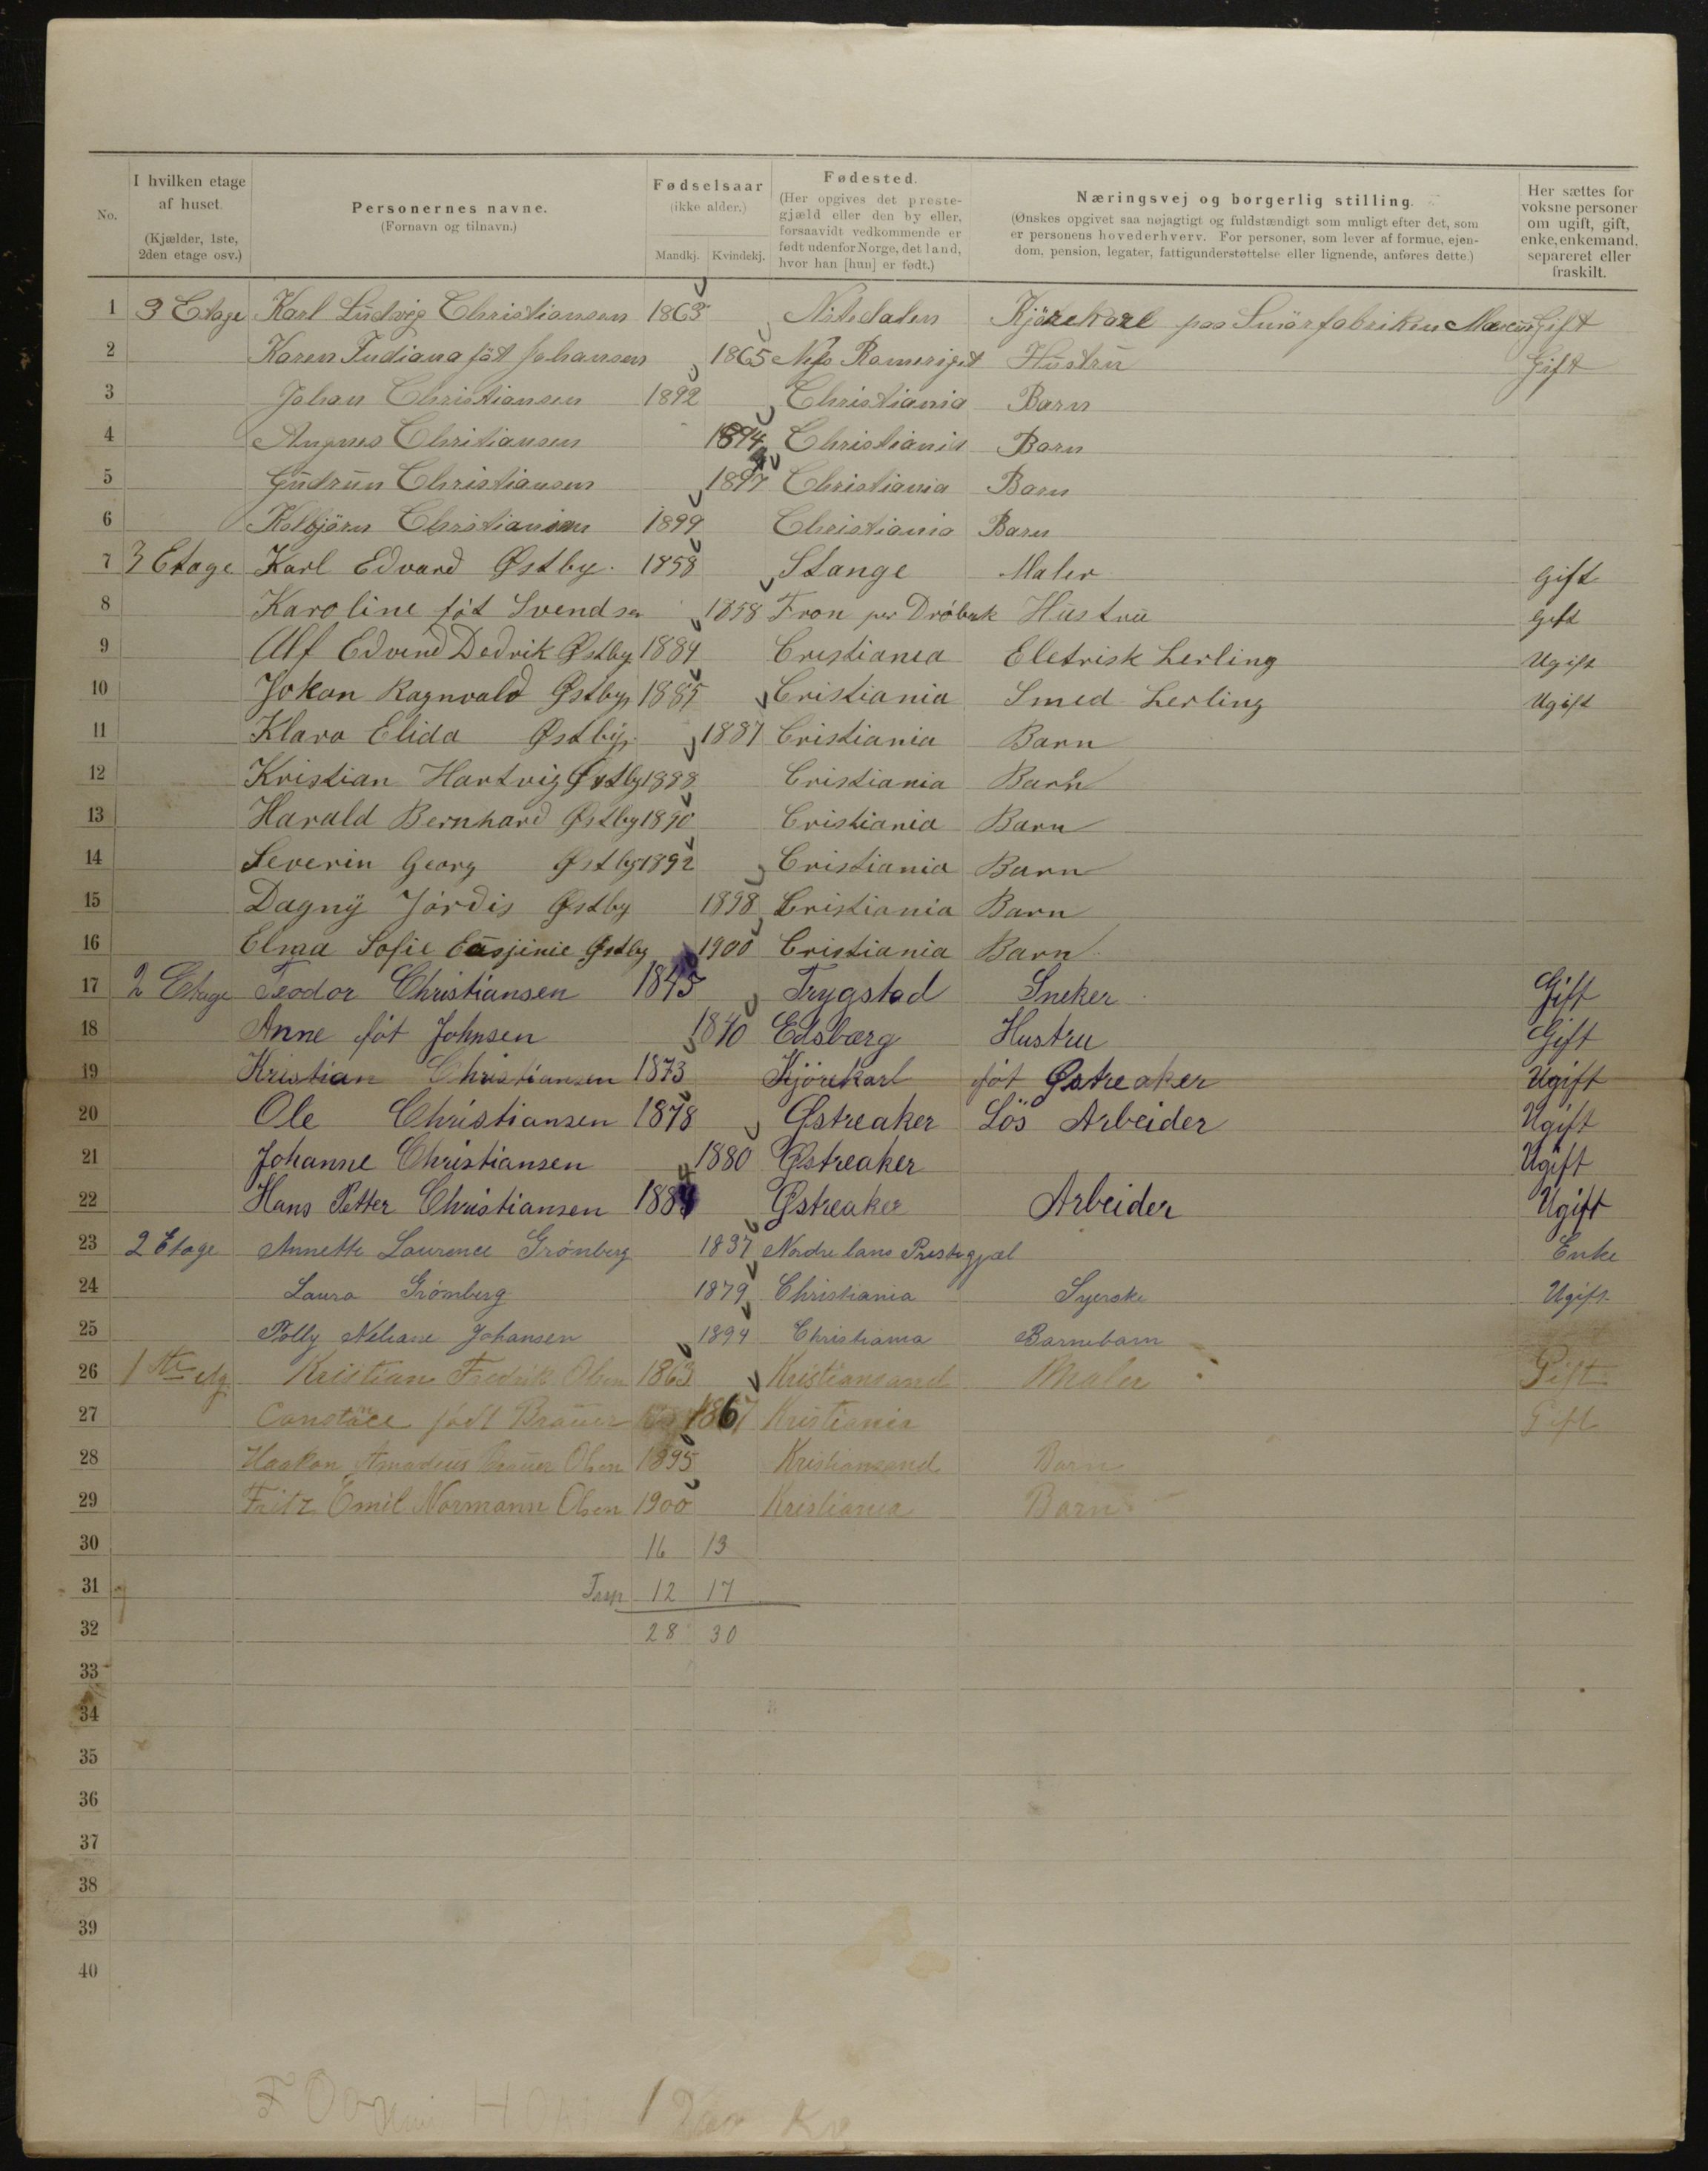 No.
I hvilken etage
af huset.
(Kjælder, 1ste,
2den etage osv.)
Personernes navne.
(Fornavn og tilnavn.)
Fødselsaar
(ikke alder.)
Mandkj. Kvindekj.
Fødested.
(Her opgives det preste-
gjæld eller den by eller,
forsaavidt vedkommende er
født udenfor Norge, det land,
hvor han [hun] er født.)
Næringsvej og borgerlig stilling.
(Ønskes opgivet saa nøjagtigt og fuldstændigt som muligt efter det, som
er personens hovederhverv. For personer, som lever af formue, ejen-
dom, pension, legater, fattigunderstøttelse eller lignende, anføres dette.)
Her sættes for
voksne personer
om ugift, gift,
enke, enkemand,
separeret eller
fraskilt.
1 3 Etage Karl Ludvig Christiansen 1863 Nitedalen Kjörekarl paa Smörfabriken Gift
2 Karen föt Johansen 1865 Næs Romeriget Hustru Gift
3 Johan Christiansen 1892 Christiania Barn
4 Christiansen 1894 Christiania Barn
5 Gudrun Christiansen 1897 Christiania Barn
6 Kolbjörn Christiansen 1899 Christiania Barn
7 3 Etage Karl Edvard Østby 1858 Stange Maler Gift
8 Karoline föt Svendsen 1858 Fron per Dröbak Hustru Gift
9 Alf Edvind Dedrik Østby 1884 Cristiania Eletrisk Lerling Ugift
10 Jokan Ragnvald Østby 1885 Cristiania Smed Lerling Ugift
11 Klara Elida Østby 1887 Cristiania Barn
12 Kristian Hartvig Østby 1888 Cristiania Barn
13 Harald Bernhard Østby 1890 Cristiania Barn
14 Severin Georg Østby 1892 Cristiania Barn
15 Dagny Jördis Østby 1898 Cristiania Barn
16 Elma Sofie Østby 1900 Cristiania Barn
17 2 Etage Teodor Christiansen 1845 Trygstad Sneker Gift
18 Anne föt Johnsen 1840 Edsbærg Hustru Gift
19 Kristian Christiansen 1873 Kjörekarl föt Østreaker Ugift
20 Ole Christiansen 1878 Østreaker Lös Arbeider Ugift
21 Johanne Christiansen 1880 Østreaker Ugift
22 Hans Petter Christiansen 1884 Østreaker Arbeider Ugift
23 2 Etage Annette Laurence Grönberg 1837 Nordre Prestegjæl Enke
24 Laura Grönberg 1879 Christiania Syerske Ugift
25 Polly Johansen 1894 Christiania Barnebarn
26 1ste etg Kristian Fredrik Olsen 1863 Kristiansand Maler Gift
27 födt Brauer 1867 Kristiania Gift
28 Haakon Amadeus Brauer Olsen 1895 Kristiansand Barn
29 Fritz Emil Normann Olsen 1900 Kristiania Barn
30 16 13
31 12 17
32 28 30
33
34
35
36
37
38
39
40